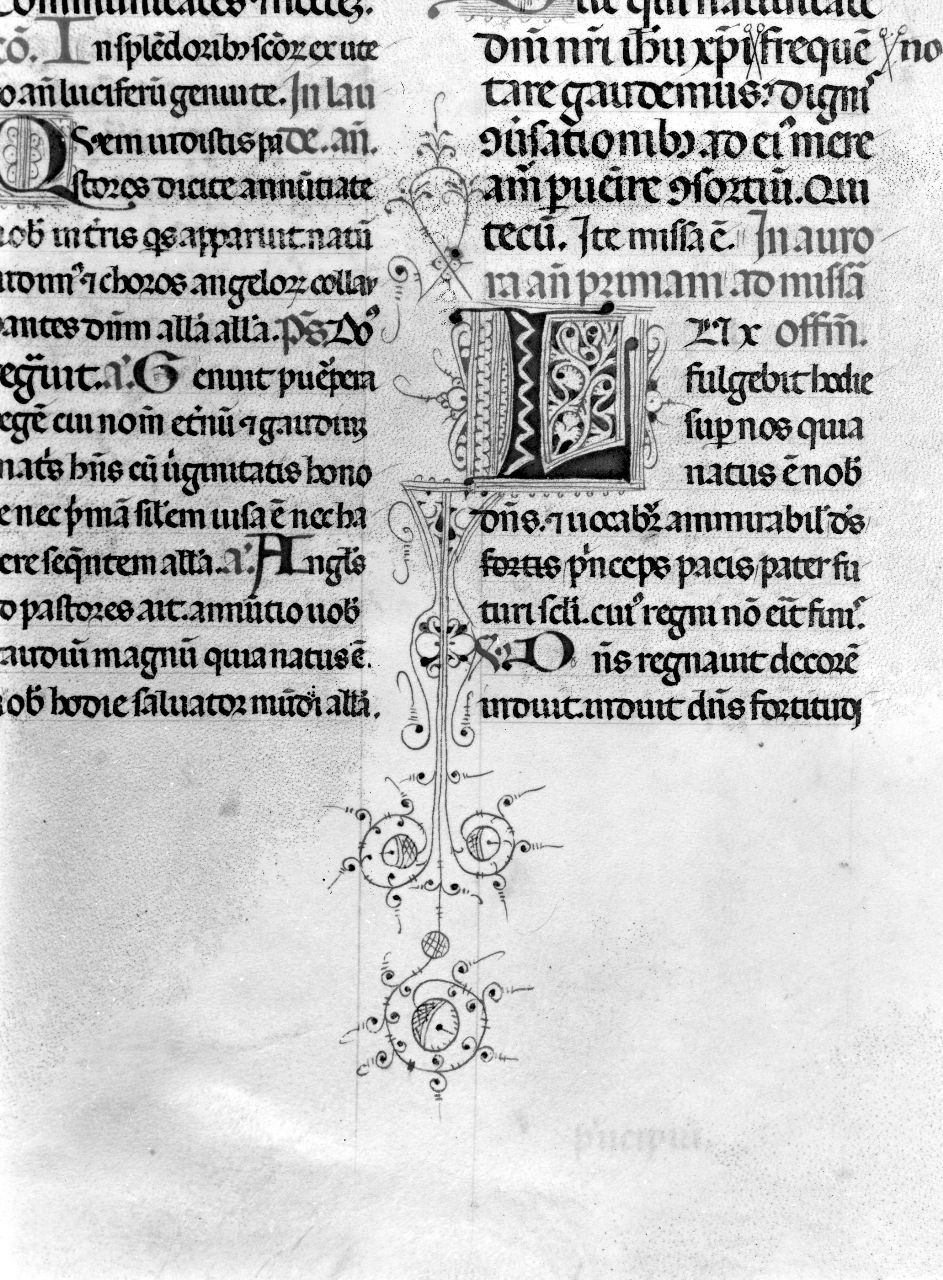 cō. In splēdoribꝫ scōꝝ ex ute
ro añ luciferū genui te. In lau
Quem uidistis pa de. añ.
stores dicite annūtiate
nob̄ in t̄ris q̄s apparuit. natū
uidimꝰ ⁊ choros angeloꝝ collau
dantes dn̄m all̓a all̓a. p̄s. Dn̄s
reg̃uit. a. Genuit pu̓ep̓era
regē cui nom̄ et̓nū ⁊ gaudiuꝫ
mat̓s hn̄s cū u̓ginitatis hono
re nec p̓mā sil̓em uisa ē nec ha
bere seq̄ntem all̓a. a. Angl̓s
ad pastores ait. annūtio uob̄
gaudiū magnū quia natus ē.
uob̄ hodie saluator mūdi all̓a.
dn̄i nr̄i ih̄u xp̄i frequē no
tare gaudemus. dignis
ꝯu̓sationibꝫ ad eiꝰ mere
am̄ puenire ꝯsortiū. Qui
tecū. Ite missa ē. In auro
ra añ primam ad missā
LUx offm̄.
fulgebit hodie
suꝑ nos quia
natus ē nob̄
dn̄s. ⁊ uocabr̄ ammirabil̓ ds̄
fortis p̓nceps pacis pater fu
turi scl̓i. cuiꝰ regni nō eit̓ finis.
Ps. Dn̄s regnauit decorē
induit. induit dn̄s fortitud̓
p̓ncipiū.